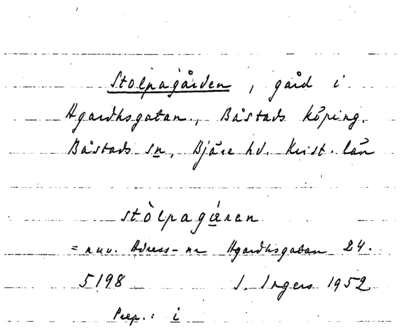 Stolpagården, gård i
Agardhsgatan., Båstads köping.
Båstads sn, Bjäre hd. Krist. län
stòlpagæ̀ren
= nuv. Adress-nr Agardhsgatan 24.
5198 I. Ingers 1952
Prep.: i